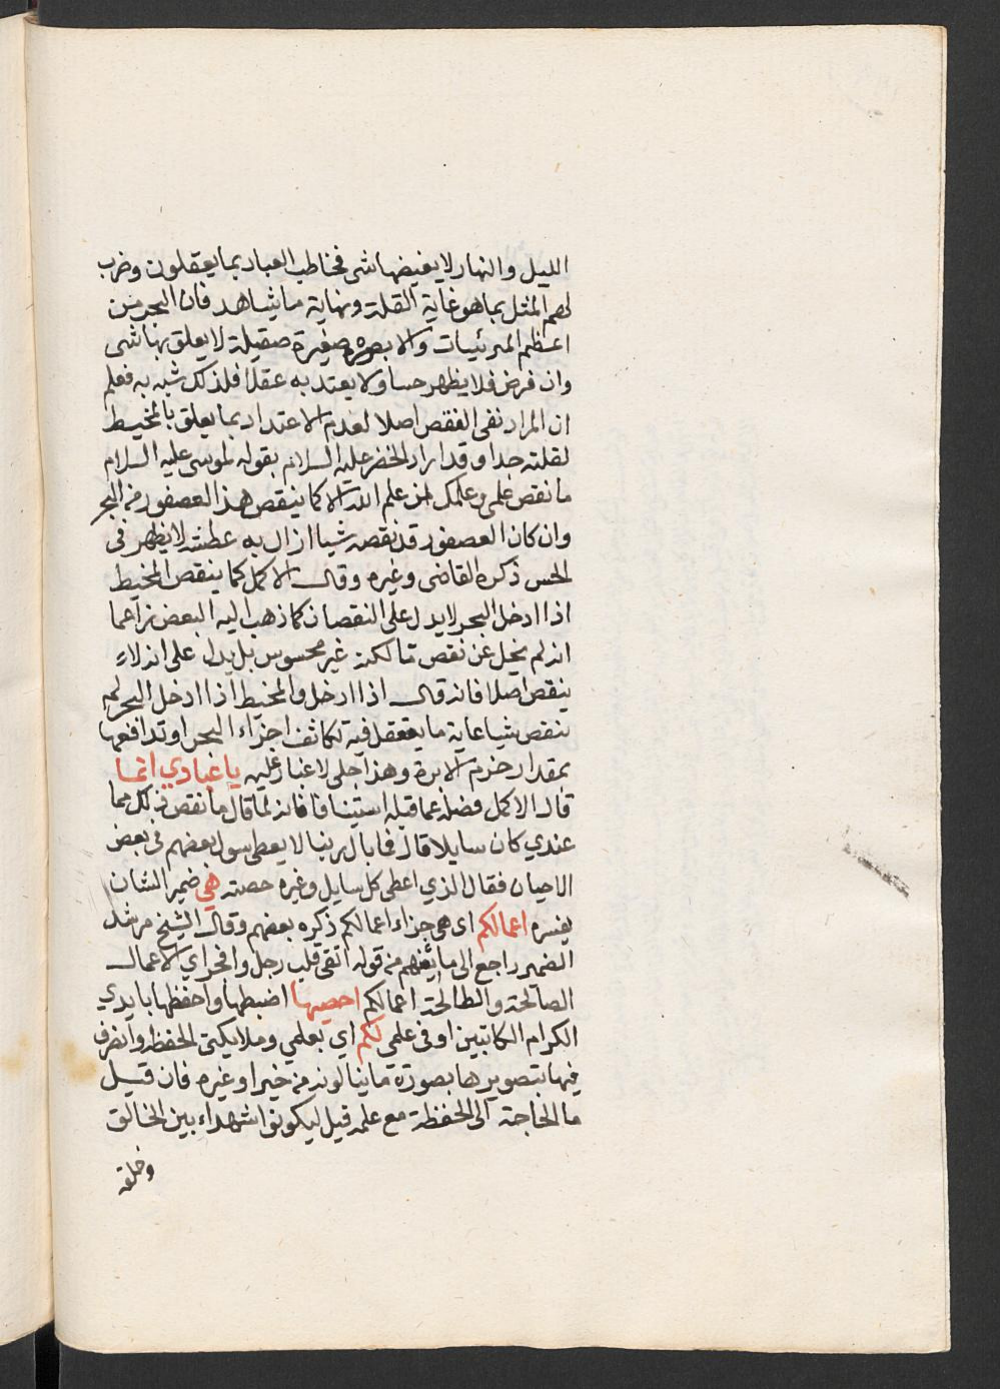 الليل والنهار لا يغيضها شى فخاطب العباد بما يعقلون وضرب
لهم المثل بما هو غاية القلة ونهاية ما يشاهد فان البحر من
اعظم المرئيات والابرة صغيرة صقيلة لا يعلق بها شى
وان فرض فلا يظهر حسا ولا يعتد به عقلا فلذلك شبه به فعلم
ان المراد نفى النقص اصلا لعدم الاعتداد بما يعلق بالمخيط
لقلته جدا وقد اراد الخضر عليه السلام بقوله لموسى عليه السلام
ما نقص علمى وعلمك من علم الله الا كما ينقص هذا العصفور من البحر
وان كان العصفور قد نقصه شيا ازال به عطشه لا يظهر فى
الحس ذكره القاضى وغيره وقال الاكمل كما ينقص المخيط
اذا ادخل البحر لا يدل على النقصان كما ذهب اليه البعض زاعما
انه لم يخل عن نقص ما لكنه غير محسوس بل يدل على انه لا
ينقص اصلا فانه قال اذا ادخل والمخيط اذا ادخل البحر لم
ينقص شيا غاية ما يتعقل فيه تكاثف اجزاء البحر او تدافعها
بمقدار خزم الابرة وهذا جلى لا غبار عليه يا عبادي انما
قال الاكمل فصله عما قبله استينافا فانه لما قال ما نقص ذلك مما
عندي كان سايلا قال فما بال ربنا لا يعطى سول بعضهم فى بعض
الاحيان فقال الذي اعطى كل سايل وغيره حصته هي ضمير الشان
يفسره اعمالكم اى هى جزاء اعمالكم ذكره بعضهم وقال الشيخ مرشد
الضمير راجع الى ما يفهم من قوله اتقى قلب رجل وافجر اي الاعمال
الصالحة والطالحة اعمالكم احصيها اضبطها واحفظها بايدي
الكرام الكاتبين او فى علمى لكم اي بعلمي وملايكتى الحفظة واتصرف
فيها بتصويرها بصورة ما ينالونه من خير او غيره فان قيل
ما الحاجة الى الحفظة مع علمه قيل ليكونوا شهداء بين الخالق
وخلقه